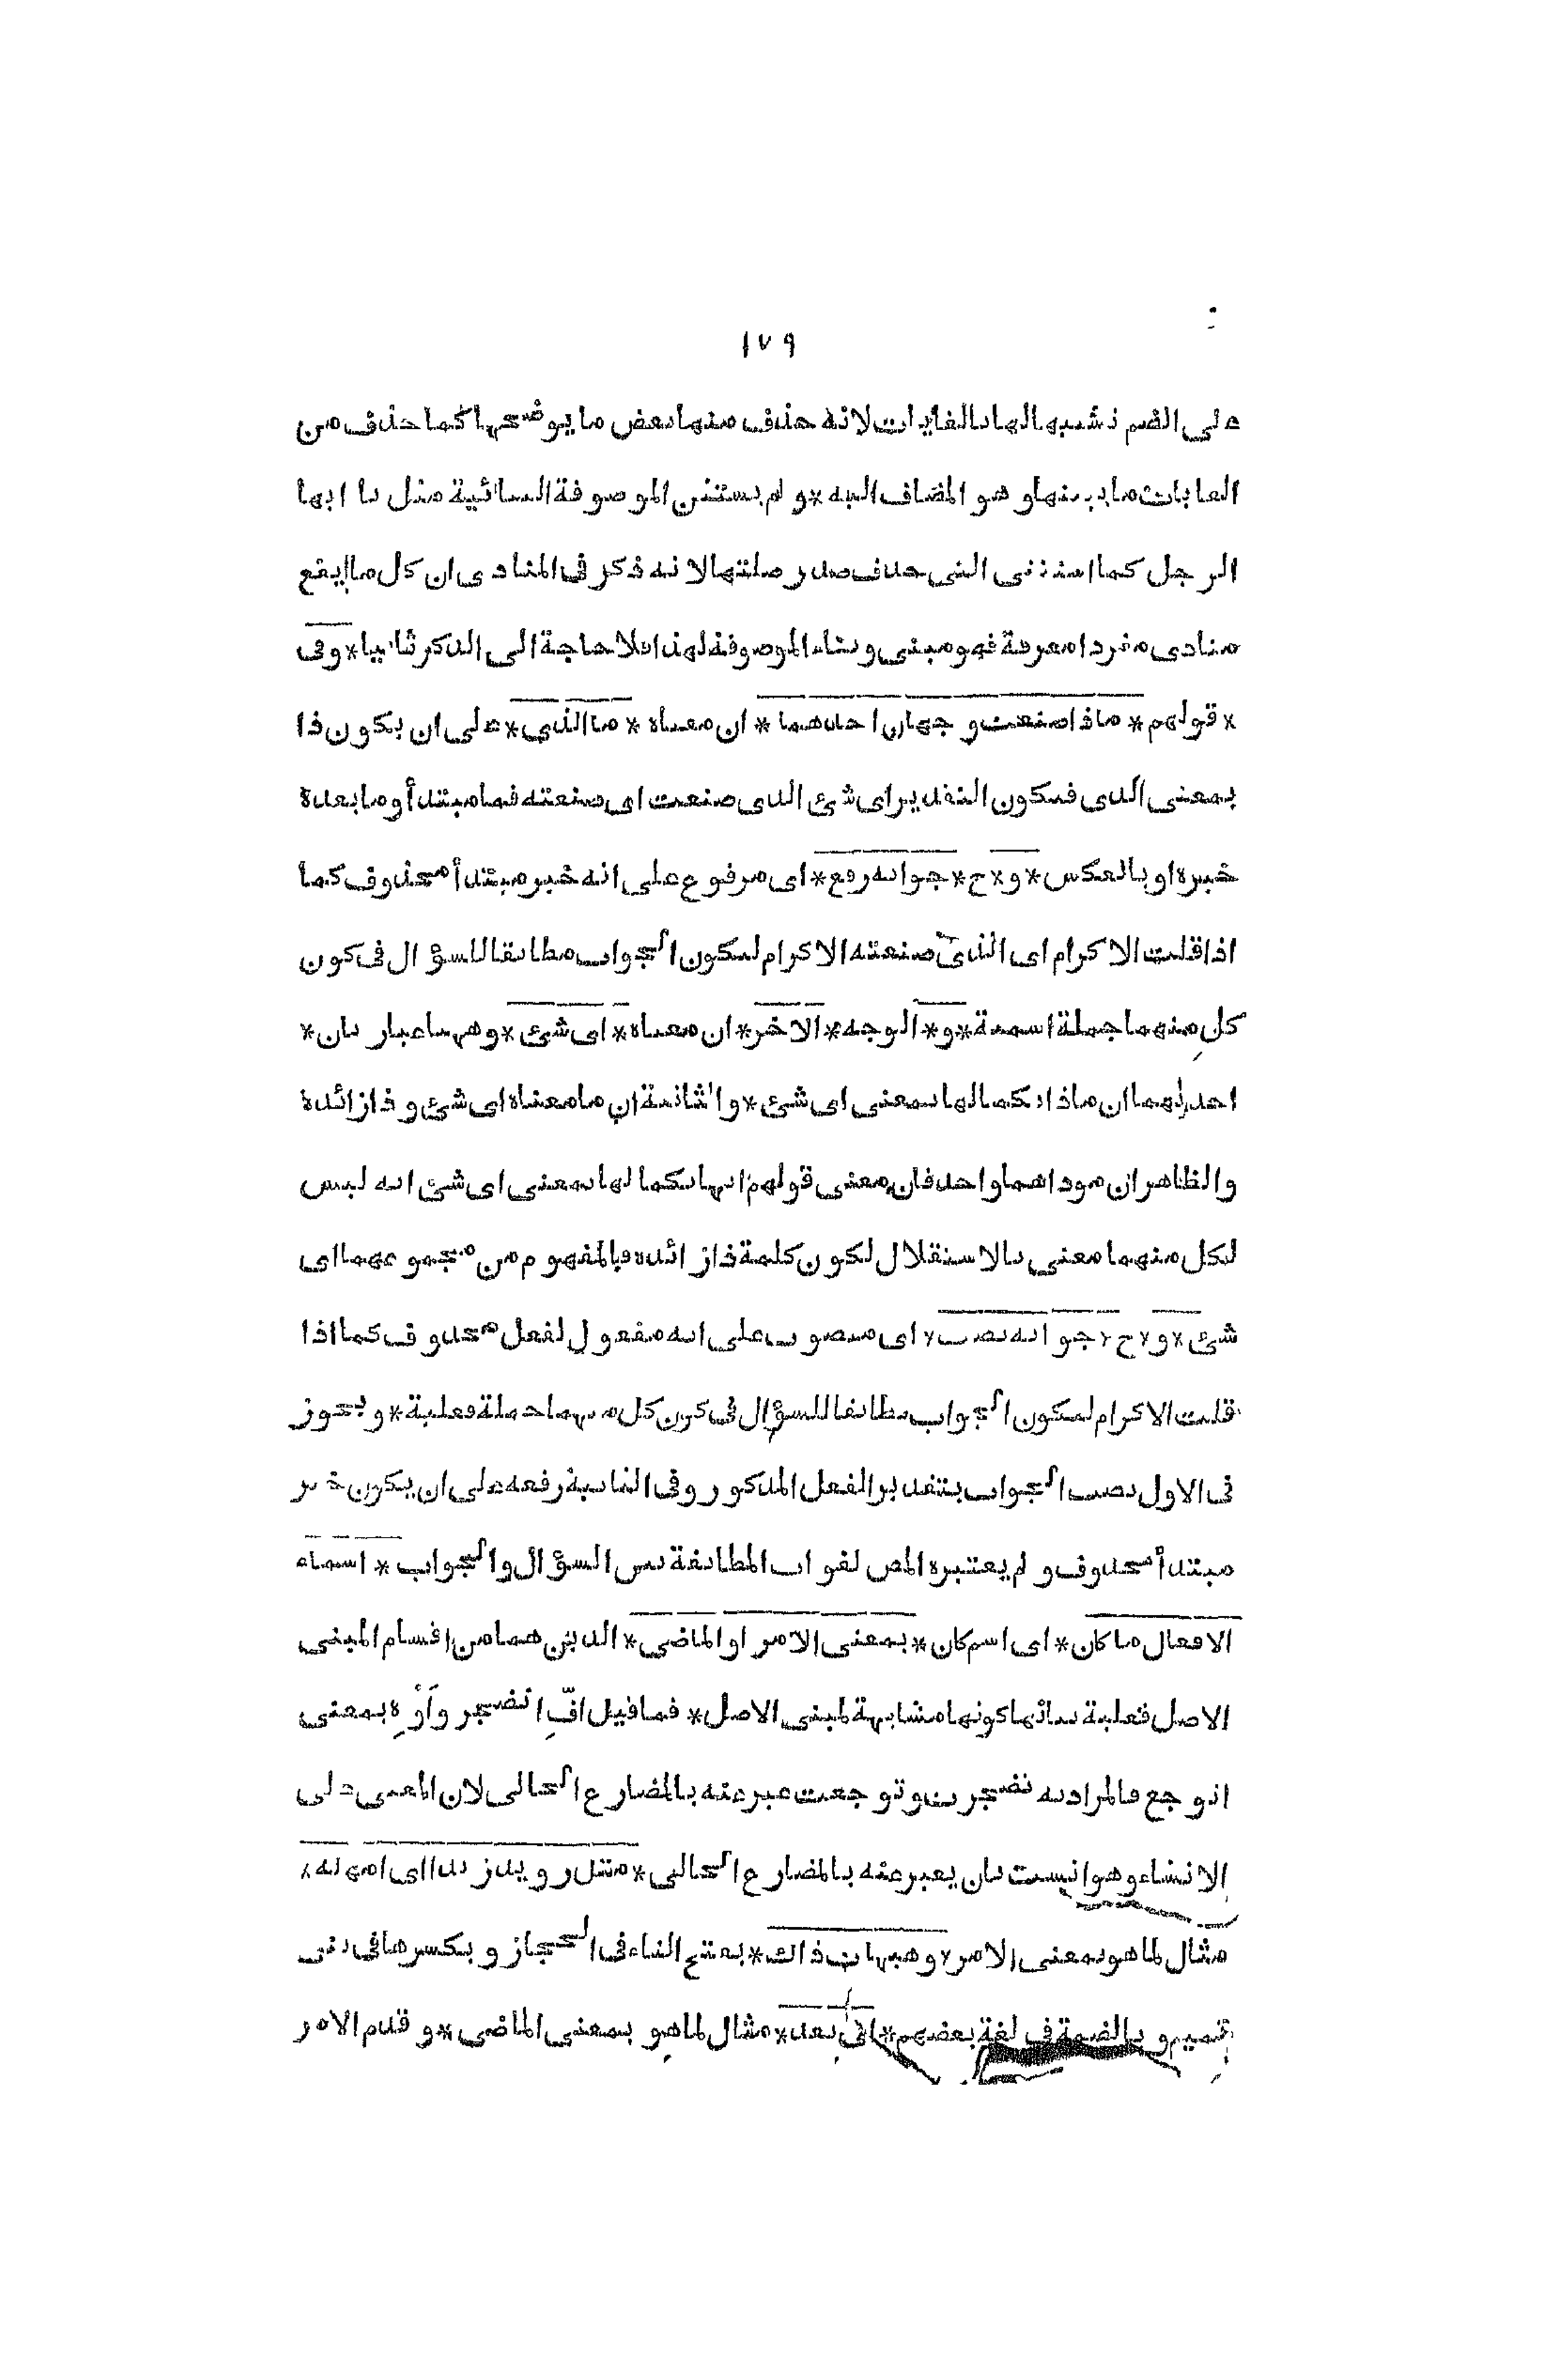 ١٧٩
على الضم تشبيها لها بالغايات لانه حذف منها بعض ما يوضحها كما حذف من
الغايات ما يبينها و هو المضاف اليه * و لم يستثن الموصوفة البنائية مثل يا ايها
الرجل كما استثنى التى حذف صدر صلتها لانه ذكر فى المنادى ان كل ما يقع
منادى مفردا معرفة فهو مبنى و بناء الموصوفة لهذا فلا حاجة الى الذكر ثانيا * و فى
* قولهم * ماذا صنعت و جهان احدهما * ان معناه * ما الذى * على ان يكون ذا
بمعنى الذى فيكون التقدير اى شئ الذى صنعت اى صنعته فما مبتدأ و ما بعده
خبره او بالعكس * و * ح * جوابه رفع * اى مرفوع على انه خبر مبتدأ محذوف كما
اذا قلت الاكرام اى الذى صنعته الاكرام ليكون الجواب مطابقا للسؤال فى كون
كل منهما جملة اسمية * و * الوجه * الاخر * ان معناه * اى شئ * و ههنا عبارتان *
احدلهما ان ماذا بكمالها بمعنى اى شئ * و الثانية ان ما معناه اى شئ و ذا زائدة
و الظاهر ان موداهما واحد فان معنى قولهم انها بكمالها بمعنى اى شئ انه ليس
لكل منهما معنى بالاستقلال لكون كلمة ذا زائدة فبالمفهوم من مجموعهما اى
شئ * و * ح * جوابه نصب * اى منصوب على انه مفعول لفعل محذوف كما اذا
قلت الاكرام ليكون الجواب مطابقا للسؤال فى كون كل منهما جملة فعلية * و يجوز
فى الاول نصب الجواب بتقدير الفعل المذكور و فى الثانية رفعه على ان يكون خبر
مبتدأ محذوف و لم يعتبره المص لفوات المطابقة بين السؤال و الجواب * اسماء
الافعال ما كان * اى اسم كان * بمعنى الامر او الماضى * الذين هما من اقسام المبنى
الاصل فعلية بنائها كونها مشابهة لمبنى الاصل * فما قيل افّ اتضجر و اَوّه بمعنى
اتوجع فالمراد به تضجرت و توجعت عبر عنه بالمضارع الحالى لان المعنى على
الانشاء و هو انسب بان يعبر عنه بالمضارع الحالى * مثل رويد زيدا اى امهله *
مثال لما هو بمعنى الامر * و هيهات ذاك * بفتح التاء فى الحجاز و بكسرها فى بنى
تميم و بالضمة فى لغة بعضهم * اى بعد * مثال لما هو بمعنى الماضى * و قدم الامر